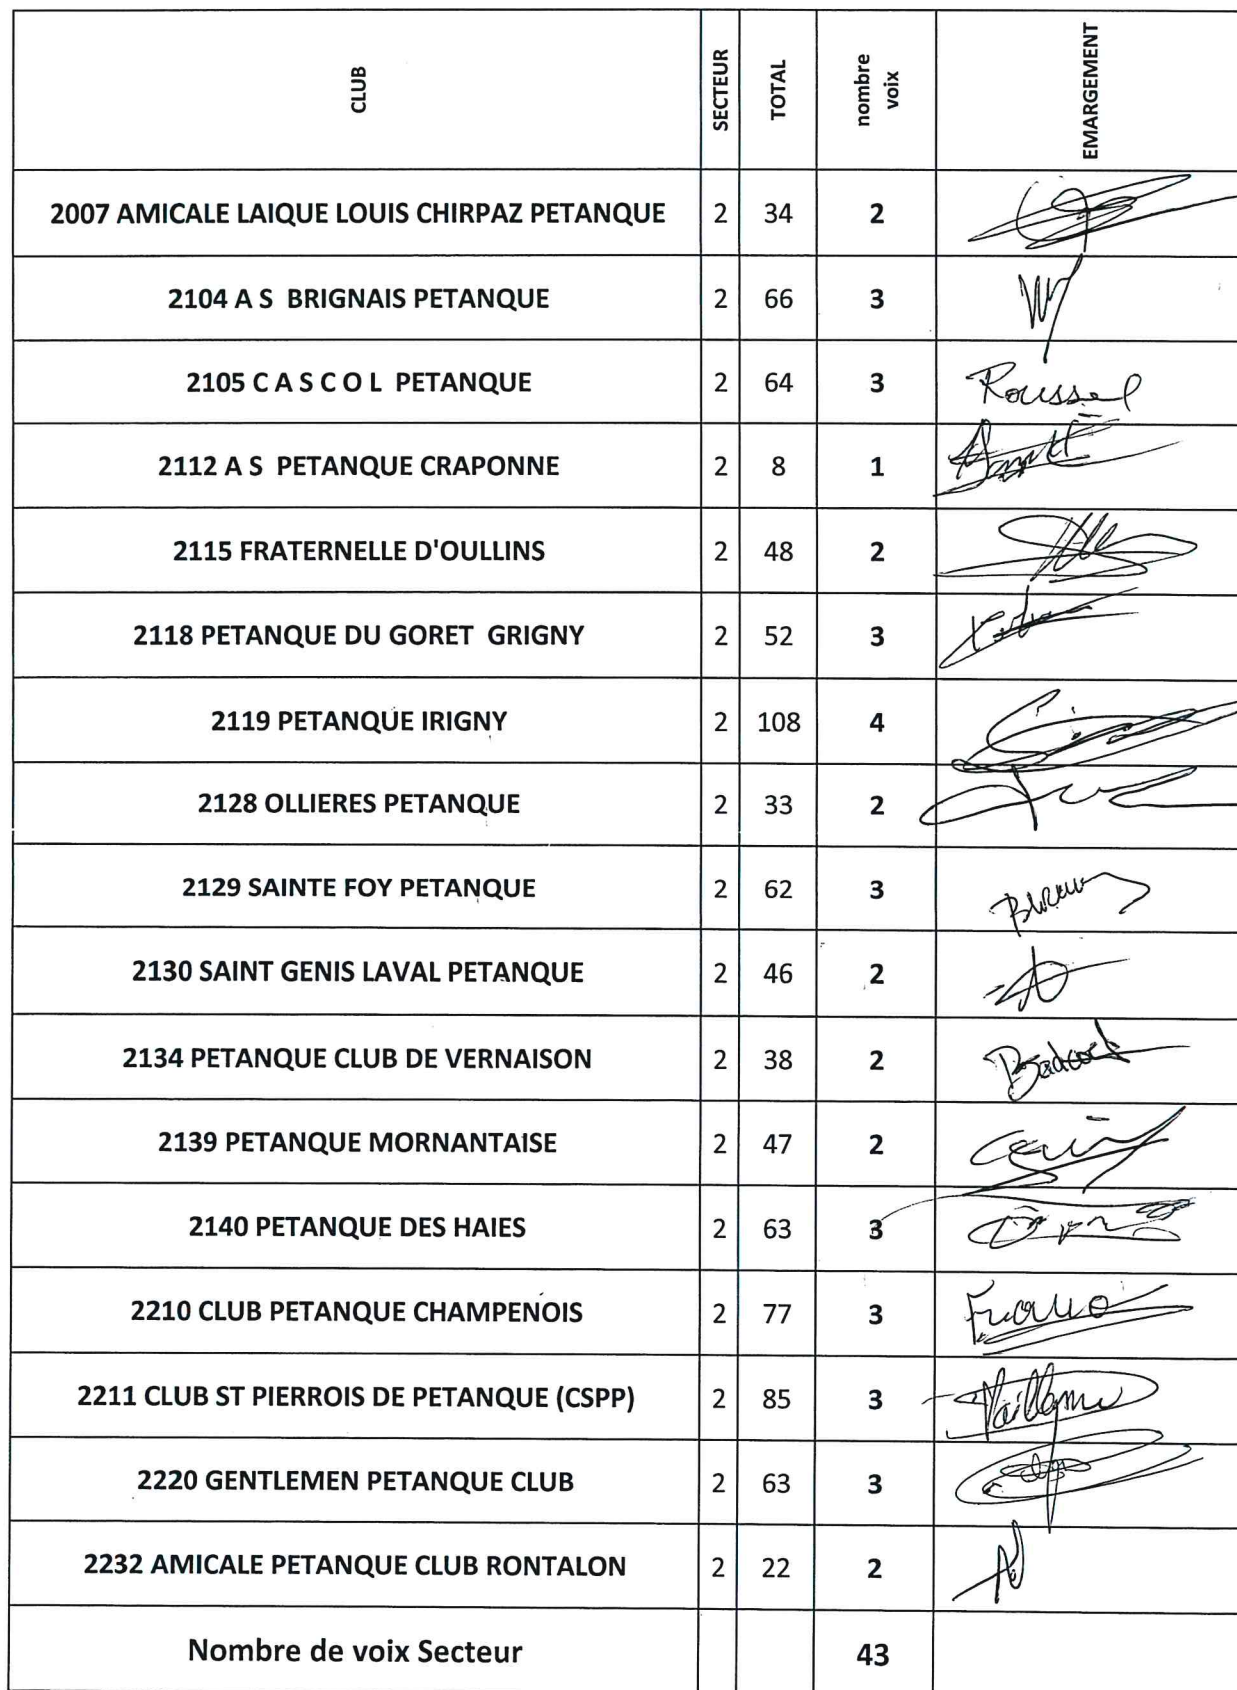 CLUB SECTEUR TOTAL nombre voix EMARGEMENT
2007 AMICALE LAIQUE LOUIS CHIRPAZ PETANQUE 2 34 2
2104 A S BRIGNAIS PETANQUE 2 66 3
2105 C A S C O L PETANQUE 2 64 3 Roussel
2112 A S PETANQUE CRAPONNE 2 8 1
2115 FRATERNELLE D'OULLINS 2 48 2
2118 PETANQUE DU GORET GRIGNY 2 52 3
2119 PETANQUE IRIGNY 2 108 4
2128 OLLIERES PETANQUE 2 33 2
2129 SAINTE FOY PETANQUE 2 62 3
2130 SAINT GENIS LAVAL PETANQUE 2 46 2
2134 PETANQUE CLUB DE VERNAISON 2 38 2
2139 PETANQUE MORNANTAISE 2 47 2
2140 PETANQUE DES HAIES 2 63 3
2210 CLUB PETANQUE CHAMPENOIS 2 77 3
2211 CLUB ST PIERROIS DE PETANQUE (CSPP) 2 85 3
2220 GENTLEMEN PETANQUE CLUB 2 63 3
2232 AMICALE PETANQUE CLUB RONTALON 2 22 2
Nombre de voix Secteur 43